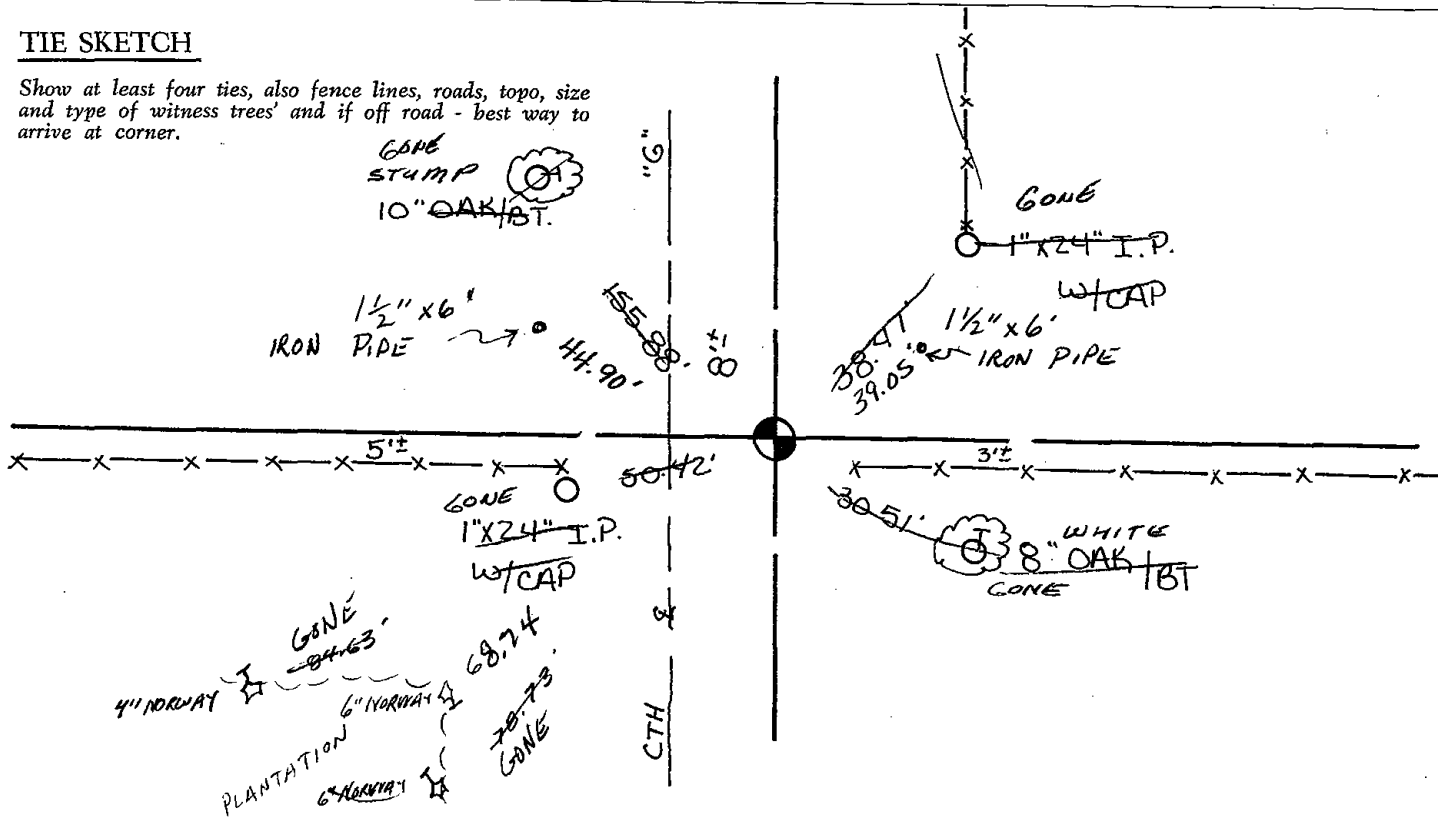 TIE SKETCH
Show at least four ties, also fence lines, roads, topo, size
and type of witness trees' and if off road - best way to
arrive at corner.
GONE
STUMP
10" OAK/BT.
"G"
GONE
1"X24" I.P.
W/CAP
1½" x6'
IRON PIPE
44.90'
155.88'
8'±
38.41'
39.05'
1½" x6'
IRON PIPE
5'±
3'±
50.42'
GONE
1"X24" I.P.
W/CAP
30.51'
WHITE
8" OAK/BT
GONE
GONE
84.63'
68.74
4" NORWAY
6" NORWAY
78.73'
GONE
PLANTATION
6" NORWAY
CTH